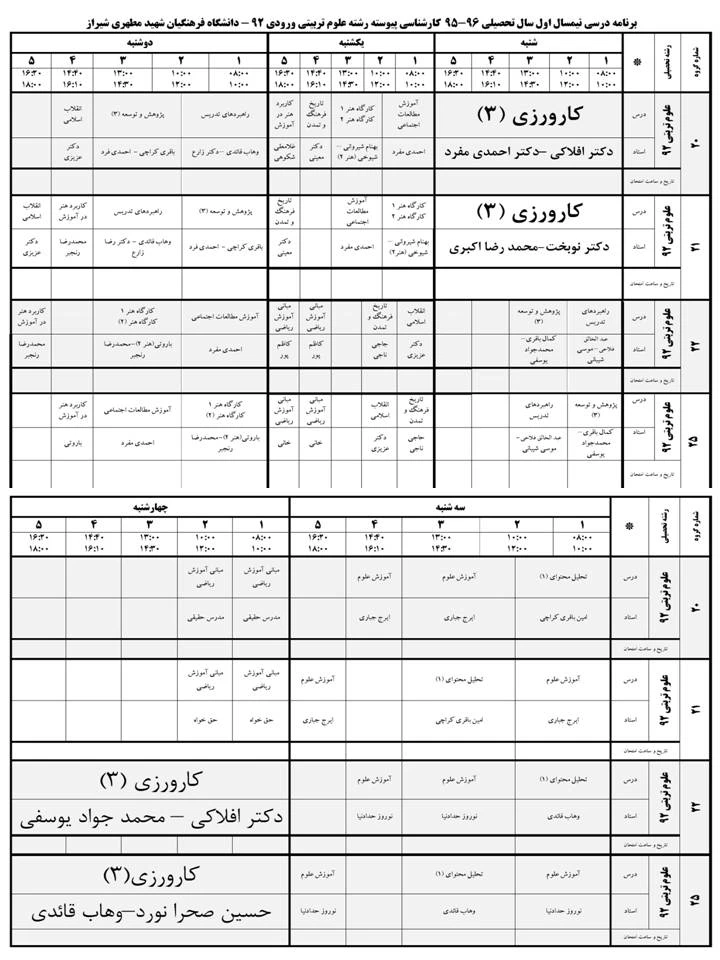 برنامه درسی نیمسال اول سال تحصیلی ۹۶-۹۵ کارشناسی پیوسته رشته علوم تربیتی ورودی ۹۲ - دانشگاه فرهنگیان شهید مطهری شیراز
شماره گروه رشته تحصیلی شنبه یکشنبه دوشنبه
۱ ۲ ۳ ۴ ۵ ۱ ۲ ۳ ۴ ۵ ۱ ۲ ۳ ۴ ۵
۰۸:۰۰ ۱۰:۰۰ ۱۳:۰۰ ۱۴:۴۰ ۱۶:۳۰ ۰۸:۰۰ ۱۰:۰۰ ۱۳:۰۰ ۱۴:۴۰ ۱۶:۳۰ ۰۸:۰۰ ۱۰:۰۰ ۱۳:۰۰ ۱۴:۴۰ ۱۶:۳۰
۱۰:۰۰ ۱۲:۰۰ ۱۴:۳۰ ۱۶:۱۰ ۱۸:۰۰ ۱۰:۰۰ ۱۲:۰۰ ۱۴:۳۰ ۱۶:۱۰ ۱۸:۰۰ ۱۰:۰۰ ۱۲:۰۰ ۱۴:۳۰ ۱۶:۱۰ ۱۸:۰۰
۲۰ علوم تربیتی ۹۲
درس کارورزی (۳) آموزش مطالعات اجتماعی کارگاه هنر ۱ کارگاه هنر ۲ تاریخ فرهنگ و تمدن کاربرد هنر در آموزش راهبردهای تدریس پژوهش و توسعه (۳) انقلاب اسلامی
استاد دکتر افلاکی -دکتر احمدی مفرد احمدی مفرد بهنام شیروانی - شیوخی (هنر ۲) دکتر معینی غلامعلی شکوهی وهاب قائدی -دکتر زارع باقری کراچی - احمدی فرد دکتر عزیزی
تاریخ و ساعت امتحان
۲۱ علوم تربیتی ۹۲
درس کارورزی (۳) کارگاه هنر ۱ کارگاه هنر ۲ آموزش مطالعات اجتماعی تاریخ فرهنگ و تمدن پژوهش و توسعه (۳) راهبردهای تدریس کاربرد هنر در آموزش انقلاب اسلامی
استاد دکتر نوبخت-محمد رضا اکبری بهنام شیروانی - شیوخی (هنر۲) احمدی مفرد دکتر معینی باقری کراچی - احمدی فرد وهاب قائدی - دکتر رضا زارع محمدرضا رنجبر دکتر عزیزی
تاریخ و ساعت امتحان
۲۲ علوم تربیتی ۹۲
درس راهبردهای تدریس پژوهش و توسعه (۳) انقلاب اسلامی تاریخ فرهنگ و تمدن مبانی آموزش ریاضی مبانی آموزش ریاضی آموزش مطالعات اجتماعی کارگاه هنر ۱ کارگاه هنر (۲) کاربرد هنر در آموزش
استاد عبد الخالق فلاحی-موسی شیبانی کمال باقری - محمدجواد یوسفی دکتر عزیزی حاجی ناجی کاظم پور کاظم پور احمدی مفرد باروتی(هنر ۲)-محمدرضا رنجبر محمدرضا رنجبر
تاریخ و ساعت امتحان
۲۵ علوم تربیتی ۹۲
درس پژوهش و توسعه (۳) راهبردهای تدریس تاریخ فرهنگ و تمدن انقلاب اسلامی مبانی آموزش ریاضی مبانی آموزش ریاضی کارگاه هنر ۱ کارگاه هنر (۲) آموزش مطالعات اجتماعی کاربرد هنر در آموزش
استاد کمال باقری- محمدجواد یوسفی عبد الخالق فلاحی- موسی شیبانی حاجی ناجی دکتر عزیزی خانی خانی باروتی(هنر ۲)-محمدرضا رنجبر احمدی مفرد باروتی
تاریخ و ساعت امتحان
شماره گروه رشته تحصیلی سه شنبه چهارشنبه
۱ ۲ ۳ ۴ ۵ ۱ ۲ ۳ ۴ ۵
۰۸:۰۰ ۱۰:۰۰ ۱۳:۰۰ ۱۴:۴۰ ۱۶:۳۰ ۰۸:۰۰ ۱۰:۰۰ ۱۳:۰۰ ۱۴:۴۰ ۱۶:۳۰
۱۰:۰۰ ۱۲:۰۰ ۱۴:۳۰ ۱۶:۱۰ ۱۸:۰۰ ۱۰:۰۰ ۱۲:۰۰ ۱۴:۳۰ ۱۶:۱۰ ۱۸:۰۰
۲۰ علوم تربیتی ۹۲
درس تحلیل محتوای (۱) آموزش علوم آموزش علوم مبانی آموزش ریاضی مبانی آموزش ریاضی
استاد امین باقری کراچی ایرج جباری ایرج جباری مدرس حقیقی مدرس حقیقی
تاریخ و ساعت امتحان
۲۱ علوم تربیتی ۹۲
درس آموزش علوم تحلیل محتوای (۱) آموزش علوم مبانی آموزش ریاضی مبانی آموزش ریاضی
استاد ایرج جباری امین باقری کراچی ایرج جباری حق خواه حق خواه
تاریخ و ساعت امتحان
۲۲ علوم تربیتی ۹۲
درس تحلیل محتوای (۱) آموزش علوم آموزش علوم کارورزی (۳)
استاد وهاب قائدی نوروز حدادنیا نوروز حدادنیا دکتر افلاکی - محمد جواد یوسفی
تاریخ و ساعت امتحان
۲۵ علوم تربیتی ۹۲
درس آموزش علوم تحلیل محتوای (۱) آموزش علوم کارورزی(۳)
استاد نوروز حدادنیا وهاب قائدی نوروز حدادنیا حسین صحرا نورد-وهاب قائدی
تاریخ و ساعت امتحان